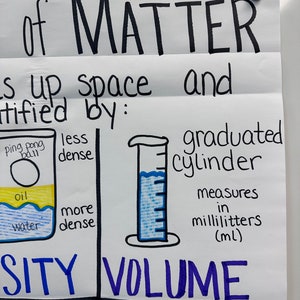 of MATTER
s up space and
tified by:
ping pong
ball
oil
water
less
dense
more
dense
SITY
graduated
cylinder
measures
in
millilitters
(mL)
VOLUME